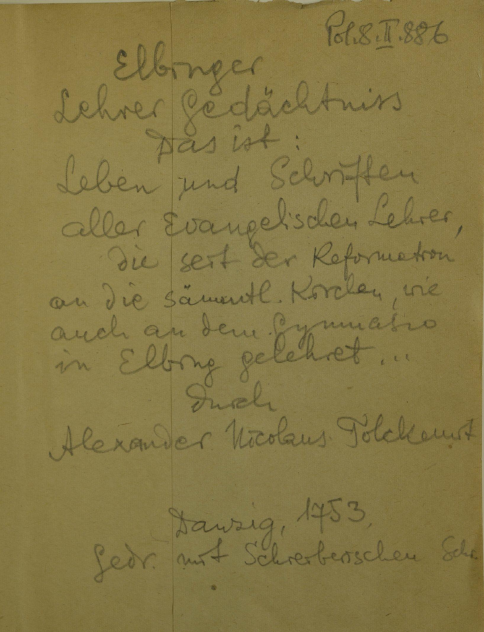 Pol.8.II.886
Elbinger
Lehrer Gedächtniss
Das ist:
Leben und Schriften
aller Evangelischen Lehrer,
die seit der Reformation
an die sämmtl. Kirchen, wie
auch an dem Gymnasio
in Elbing gelehret...
durch
Alexander Nicolaus Tolckemit
Danzig, 1753.
Gedr. mit Schreiberischen Schr.